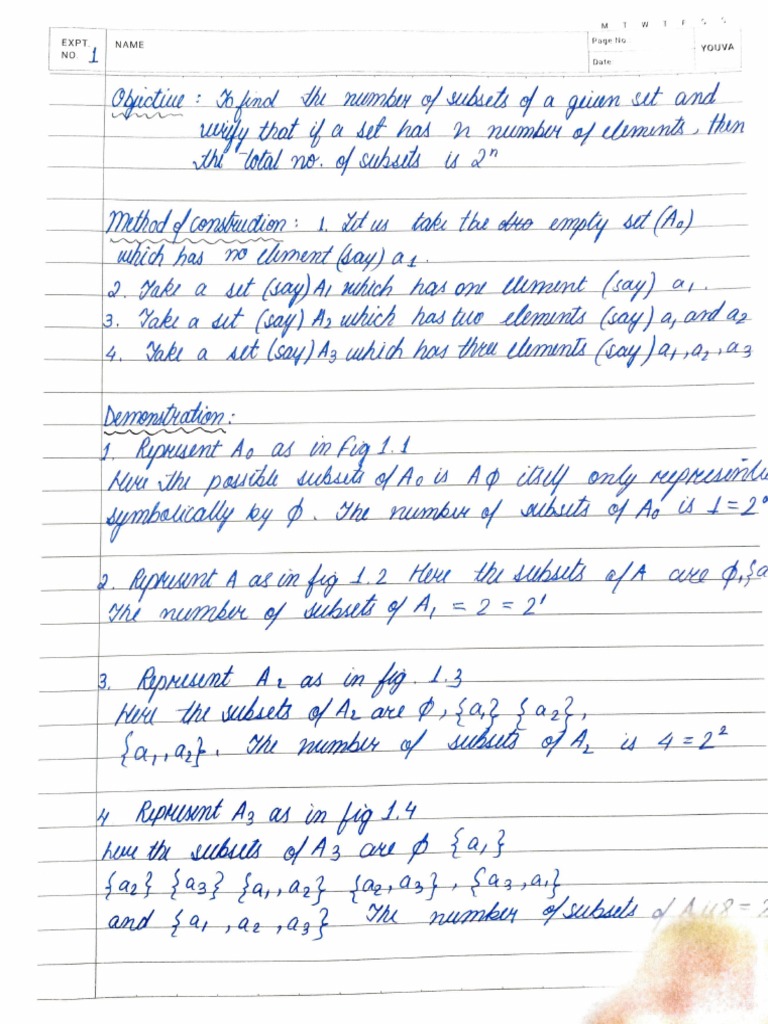 M T W T F S S
EXPT. NO. 1 NAME Page No. YOUVA
Date
Objective : To find the number of subsets of a given set and
verify that if a set has n number of elements, then
the total no. of subsets is 2ⁿ
Method of construction : 1. Let us take the empty set (A₀)
which has no element (say) a₁.
2. Take a set (say) A₁ which has one element (say) a₁.
3. Take a set (say) A₂ which has two elements (say) a₁ and a₂
4. Take a set (say) A₃ which has three elements (say) a₁, a₂, a₃
Demonstration :
1. Represent A₀ as in Fig 1.1
Here the possible subsets of A₀ is Aϕ itself only
symbolically by ϕ. The number of subsets of A₀ is 1 = 2⁰
2. Represent A as in fig 1.2 Here the subsets of A are ϕ, {a
The number of subsets of A₁ = 2 = 2¹
3. Represent A₂ as in fig. 1.3
Here the subsets of A₂ are ϕ, {a₁} {a₂},
{a₁, a₂}. The number of subsets of A₂ is 4 = 2²
4 Represent A₃ as in fig 1.4
here the subsets of A₃ are ϕ {a₁}
{a₂} {a₃} {a₁, a₂} {a₂, a₃}, {a₃, a₁}
and {a₁, a₂, a₃} The number of subsets of 8 = 2